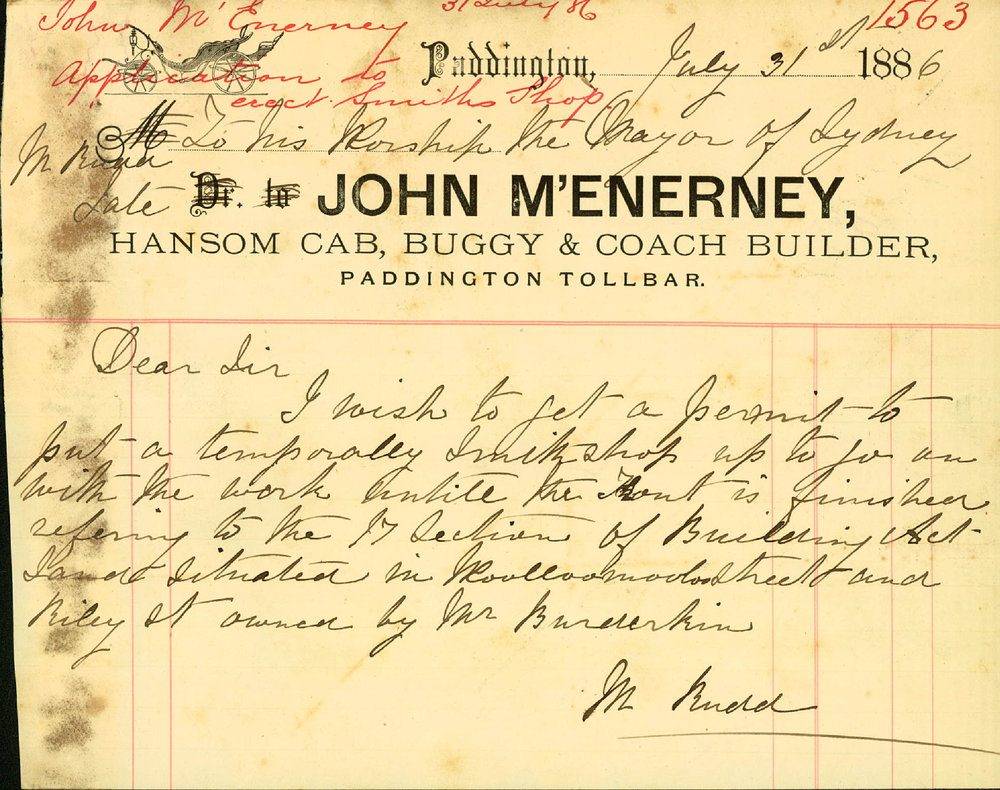 John M'Enerney 31 July 86 1563
Application to
erect Smiths Shop.
Paddington, July 31st 1886
M To his Worship the Mayor of Sydney
M Rudd
Late Dr. to JOHN M'ENERNEY,
HANSOM CAB, BUGGY & COACH BUILDER,
PADDINGTON TOLLBAR.
Dear Sir
I wish to get a permit to
put a temporally Smithshop up to go on
with the work untill the Front is finished
refering to the 17 Section of Building Act
Land Situated in Woolloomooloo Street and
Riley St owned by Mr Burderkin
M Rudd